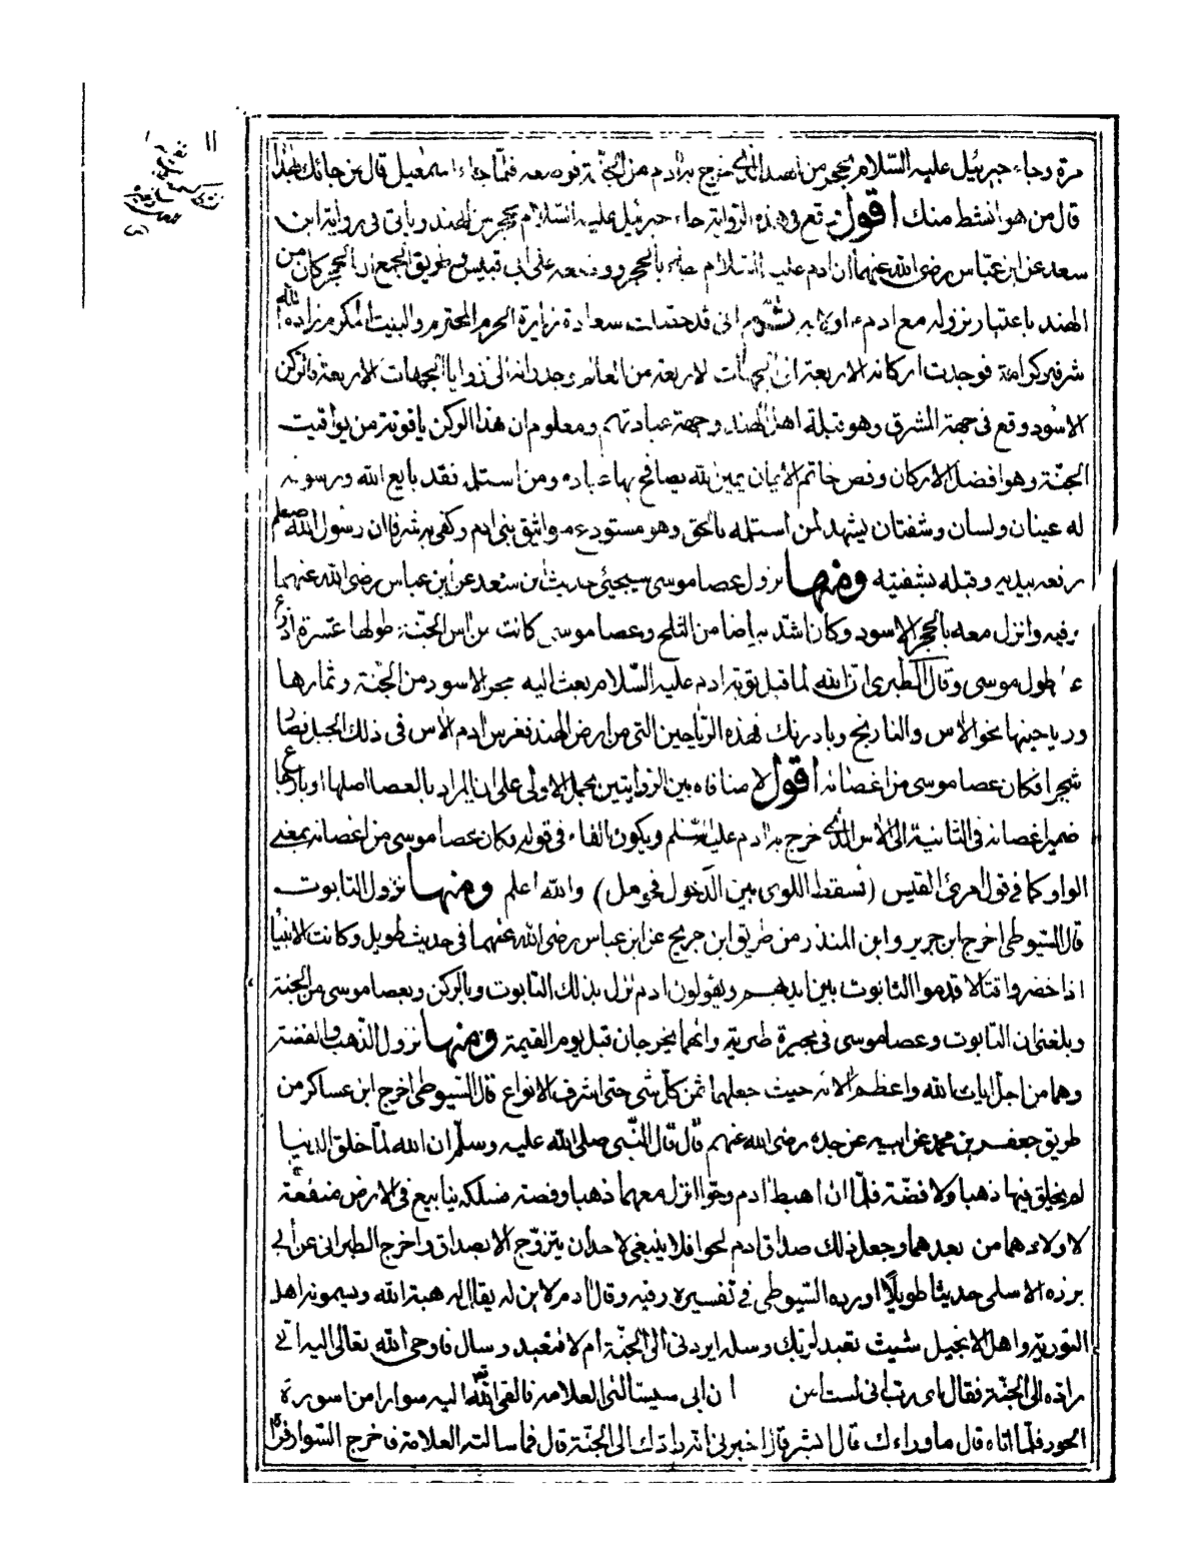 ١١
مرة وجاء جبرئيل عليه السلام بحجر من الهند الذى خرج به ادم من الجنة فوضعه فلما جاء اسمعيل قال من جائك بهذا
قال من هو انشط منك اقول وقع فى هذه الرواية جاء جبرئيل عليه السلام بحجر من الهند وياتى فى رواية ابن
سعد عن ابن عباس رضى الله عنهما ان ادم عليه السلام جاء بالحجر ووضعه على ابى قبيس وطريق الجمع ان الحجر كان من
الهند باعتبار نزوله مع ادم اولا به ثم انى قد حصلت سعادة زيارة الحرم المحترم والبيت المكرم زاده الله
شرفا وكرامة فوجدت اركانه الاربعة الى الجهات الاربعة من العالم وجدرانه الى زوايا الجهات الاربعة فالركن
الاسود وقع فى جهة المشرق وهو قبلة اهل الهند وجهة عبادتهم ومعلوم ان هذا الركن ياقوتة من يواقيت
الجنة وهو افضل الاركان وفص خاتم الايمان يمين الله يصافح بها عباده ومن استلمه فقد بايع الله ورسوله
له عينان ولسان وشفتان يشهد لمن استلمه بالحق وهو مستودع مواثيق بنى ادم وكفى به شرفا ان رسول الله صلعم
رفعه بيديه وقبله بشفتيه ومنها نزول عصا موسى سيجيئ حديث ابن سعد عن ابن عباس رضى الله عنهما
وفيه وانزل معه بالحجر الاسود وكان اشد بياضا من الثلج وعصا موسى كانت من اس الجنة طولها عشرة اذرع
على طول موسى وقال الطبرى ان الله لما قبل توبة ادم عليه السلام بعث اليه بحجر الاسود من الجنة وثمارها
ورياحينها نحو الاس والنارنج وبادرنك فهذه الرياحين التى من ارض الهند فغرس ادم الاس فى ذلك الجبل فصار
شجرا فكان عصا موسى من اغصانه اقول لا منافاة بين الروايتين بحمل الاولى على ان المراد بالعصا اصلها او بارجاع
ضمير اغصانه فى الثانية الى الاس الذى خرج به ادم عليه السلم ويكون الفاء فى قوله فكان عصا موسى من اغصانه بمعنى
الواو كما فى قول امرئ القيس (بسقط اللوى بين الدخول فحومل) والله اعلم ومنها نزول التابوت
قال السيوطى اخرج ابن جرير وابن المنذر من طريق ابن جريج عن ابن عباس رضى الله عنهما فى حديث طويل وكانت الانبيا
اذا حضروا قتالا قدموا التابوت بين ايديهم ويقولون ادم نزل بذلك التابوت وبالركن وبعصا موسى من الجنة
وبلغنى ان التابوت وعصا موسى فى بحيرة طبرية وانهما يخرجان قبل يوم القيمة ومنها نزول الذهب والفضة
وهما من اجل ايات الله واعظم الائه حيث جعلهما ثمن كل شى حتى اشرف الانواع قال السيوطى اخرج ابن عساكر من
طريق جعفر بن محمد عن ابيه عن جده رضى الله عنهم قال قال النبى صلى الله عليه وسلم ان الله لما خلق الدنيا
لم يخلق فيها ذهبا ولا فضة فلما ان اهبط ادم وحوا انزل معهما ذهبا وفضة فسلكه ينابيع فى الارض منفعة
لاولادهما من بعدهما وجعل ذلك صداق ادم لحوا فلا ينبغى لاحد ان يتزوج الا بصداق واخرج الطبرانى عن ابى
برزه الاسلمى حديثا طويلا اورده السيوطى فى تفسيره وفيه وقال ادم لابن له يقال له هبة الله ويسمونه اهل
التورية واهل الانجيل شيث تعبد لربك وسله ايردنى الى الجنة ام لا فتعبد وسال فاوحى الله تعالى اليه انى
راده الى الجنة فقال اى رب انى لست امن ان ابى سيسالنى العلامة فالقى الله اليه سوارا من اسورة
الحور فلما اتاه قال ماوراءك قال ابشر قال اخبرنى انه رادك الى الجنة قال فما سالته العلامة فاخرج السوار فراه